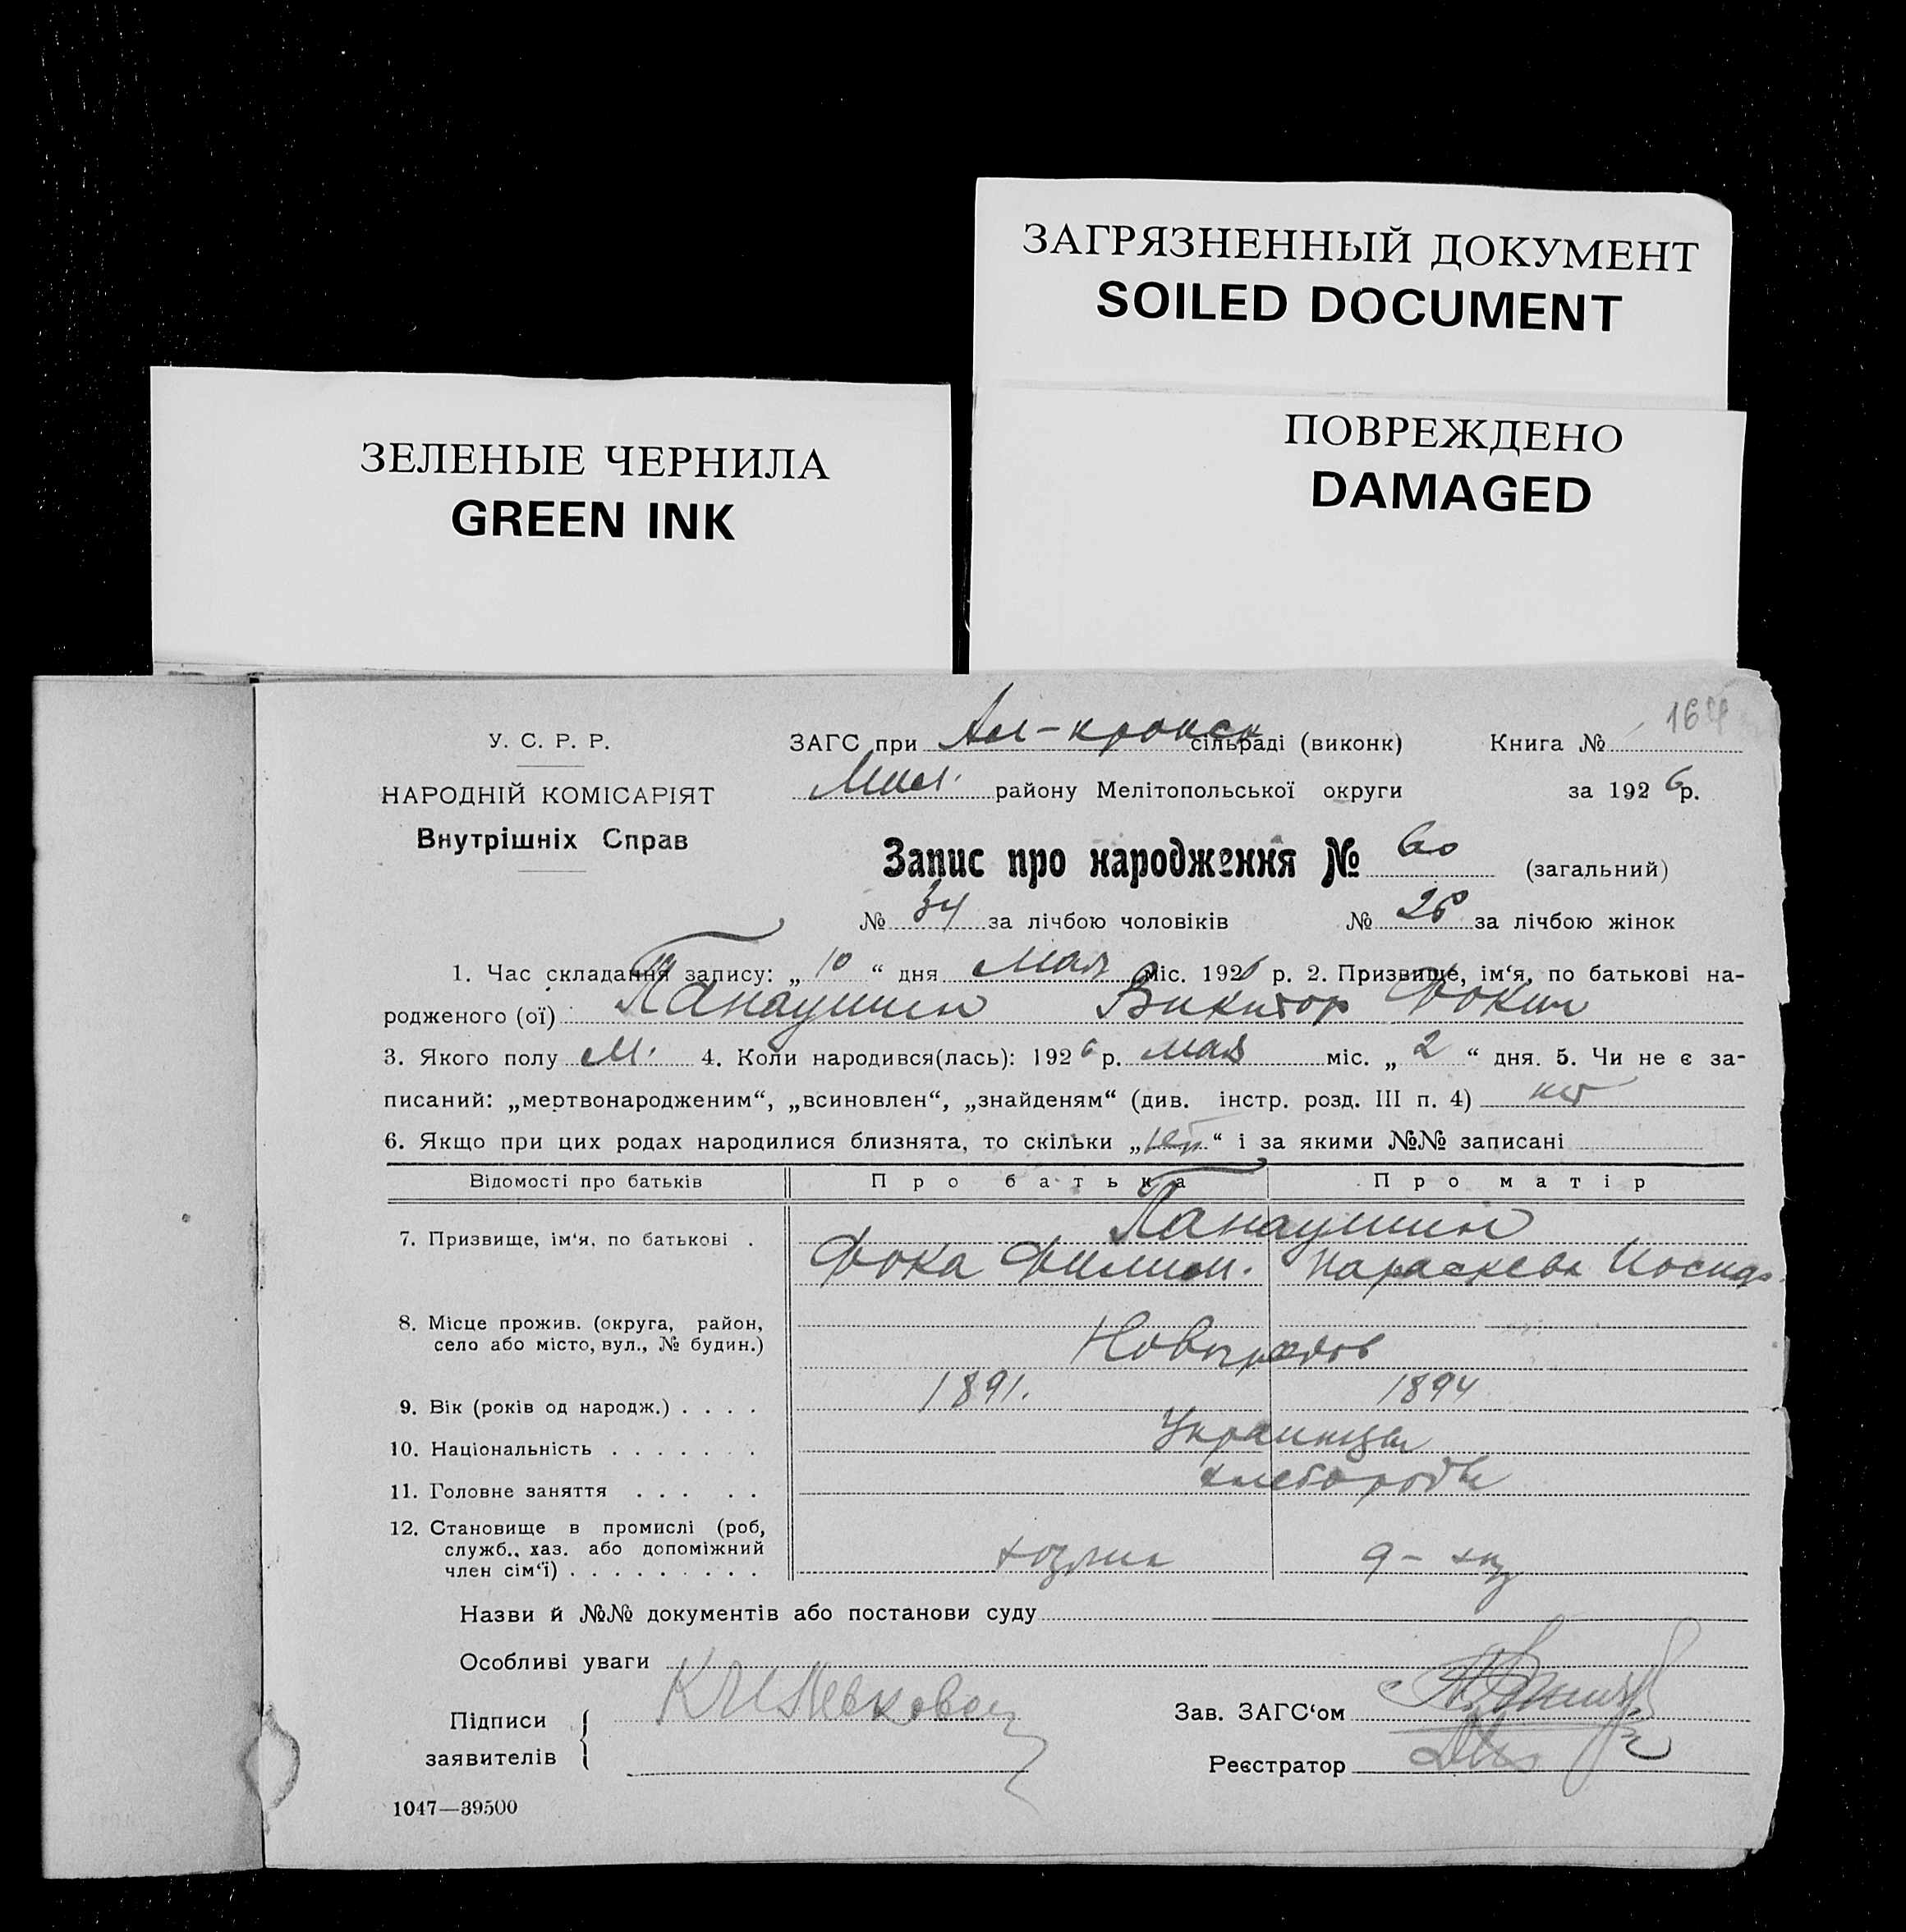 ЗАГРЯЗНЕННЫЙ ДОКУМЕНТ
SOILED DOCUMENT
ЗЕЛЕНЫЕ ЧЕРНИЛА
GREEN INK
ПОВРЕЖДЕНО
DAMAGED
У. С. Р. Р.
НАРОДНІЙ КОМІСАРІЯТ
Внутрішніх Справ
ЗАГС при сільраді (виконк) Книга №
району Мелітопольської округи за 1926 р.
Запис про народження № 60 (загальний)
№ 34 за лічбою чоловіків № 26 за лічбою жінок
1. Час складання запису: „10“ дня мая міс. 1926 р. 2. Призвище, ім‘я, по батькові на-
родженого (ої) Панаушин Виктор Фокич
3. Якого полу М. 4. Коли народився(лась): 1926 р. мая міс. „2“ дня. 5. Чи не є за-
писаний: „мертвонародженим“, „всиновлен“, „знайденям“ (див. інстр. розд. III п. 4) нет
6. Якщо при цих родах народилися близнята, то скільки „нет“ і за якими №№ записані
Відомості про батьків Про батька Про матір
7. Призвище, ім‘я, по батькові . Панаушин
Фока Филип. Параскева Иосифо.
8. Місце прожив. (округа, район,
село або місто, вул., № будин.)
9. Вік (років од народж.) . . . . 1891. 1894
10. Національність . . . . . . . Украинцы
11. Головне заняття . . . . . хлеборобы
12. Становище в промислі (роб,
служб., хаз. або допоміжний
член сім‘ї) . . . . . . . . . хозяин
Назви й №№ документів або постанови суду
Особливі уваги
Підписи
заявителів
Зав. ЗАГС‘ом
Реєстратор
1047—39500